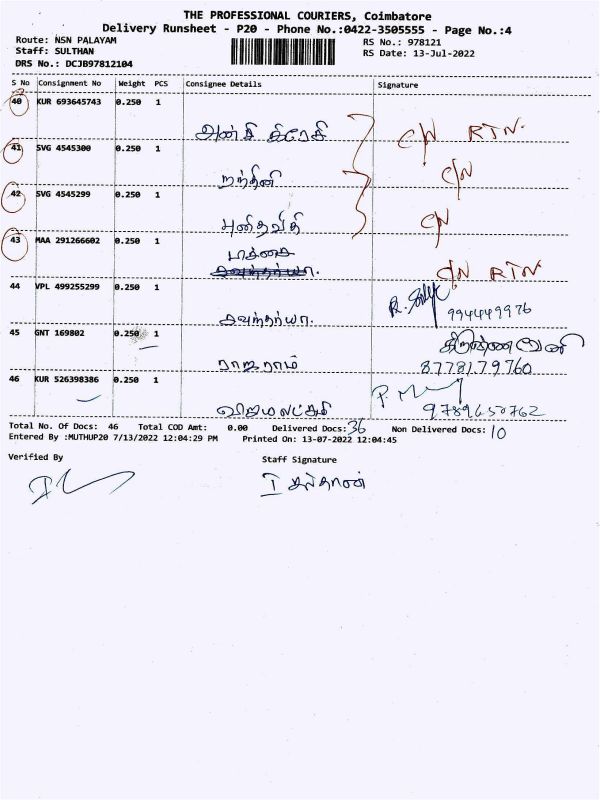 THE PROFESSIONAL COURIERS, Coimbatore
Delivery Runsheet - P20 - Phone No.:0422-3505555 - Page No.:4
Route: NSN PALAYAM RS No.: 978121
Staff: SULTHAN RS Date: 13-Jul-2022
DRS No.: DCJB97812104
S No Consignment No Weight PCS Consignee Details Signature
40 KUR 693645743 0.250 1
C/N RTN.
41 SVG 4545300 0.250 1
நந்தினி C/N
42 SVG 4545299 0.250 1
புனிதவதி C/N
43 MAA 291266602 0.250 1
C/N RTN
44 VPL 499255299 0.250 1
சவுந்தர்யா. 994449976
45 GNT 169802 0.250 1
ராஜராம் 8778179760
46 KUR 526398386 0.250 1
விஜயலட்சுமி 9789650762
Total No. Of Docs: 46 Total COD Amt: 0.00 Delivered Docs: 36 Non Delivered Docs: 10
Entered By :MUTHUP20 7/13/2022 12:04:29 PM Printed On: 13-07-2022 12:04:45
Verified By Staff Signature